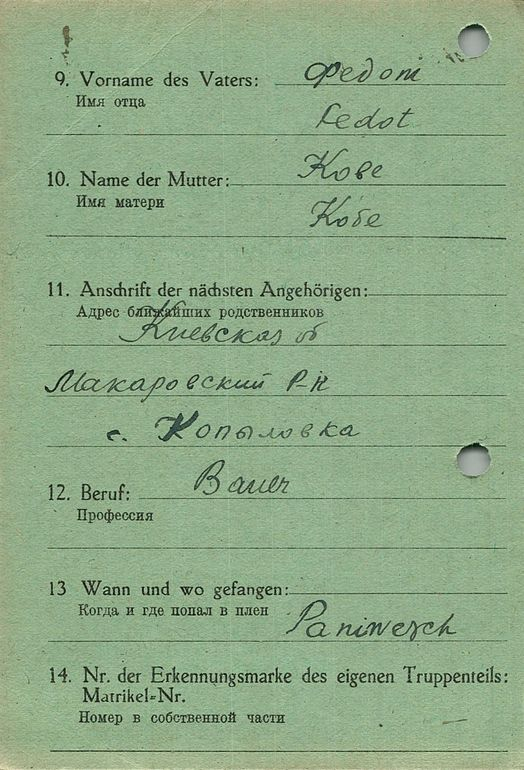 9. Vorname des Vaters: Федот
Имя отца
Fedot
10. Name der Mutter: Кове
Имя матери
Кове
11. Anschrift der nächsten Angehörigen:
Адрес ближайших родственников
Киевская об
Макаровский р-н
с. Копыловка
12. Beruf: Bauer
Профессия
13 Wann und wo gefangen:
Когда и где попал в плен
Paniwesch
14. Nr. der Erkennungsmarke des eigenen Truppenteils:
Matrikel-Nr.
Номер в собственной части